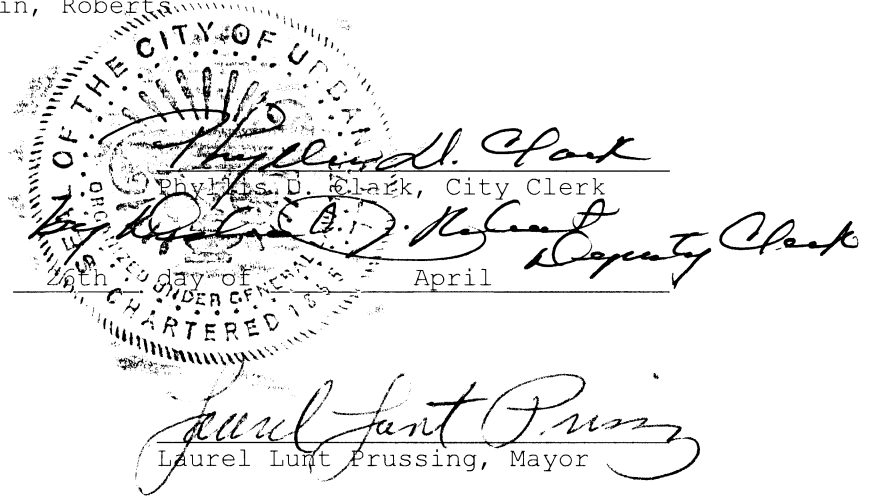 in, Roberts
SEAL OF THE CITY OF URBANA
ORGANIZED UNDER GENERAL
CHARTERED 1855
Phyllis D. Clark
Phyllis D. Clark, City Clerk
by
Deputy Clerk
26th day of April
Laurel Lunt Prussing
Laurel Lunt Prussing, Mayor